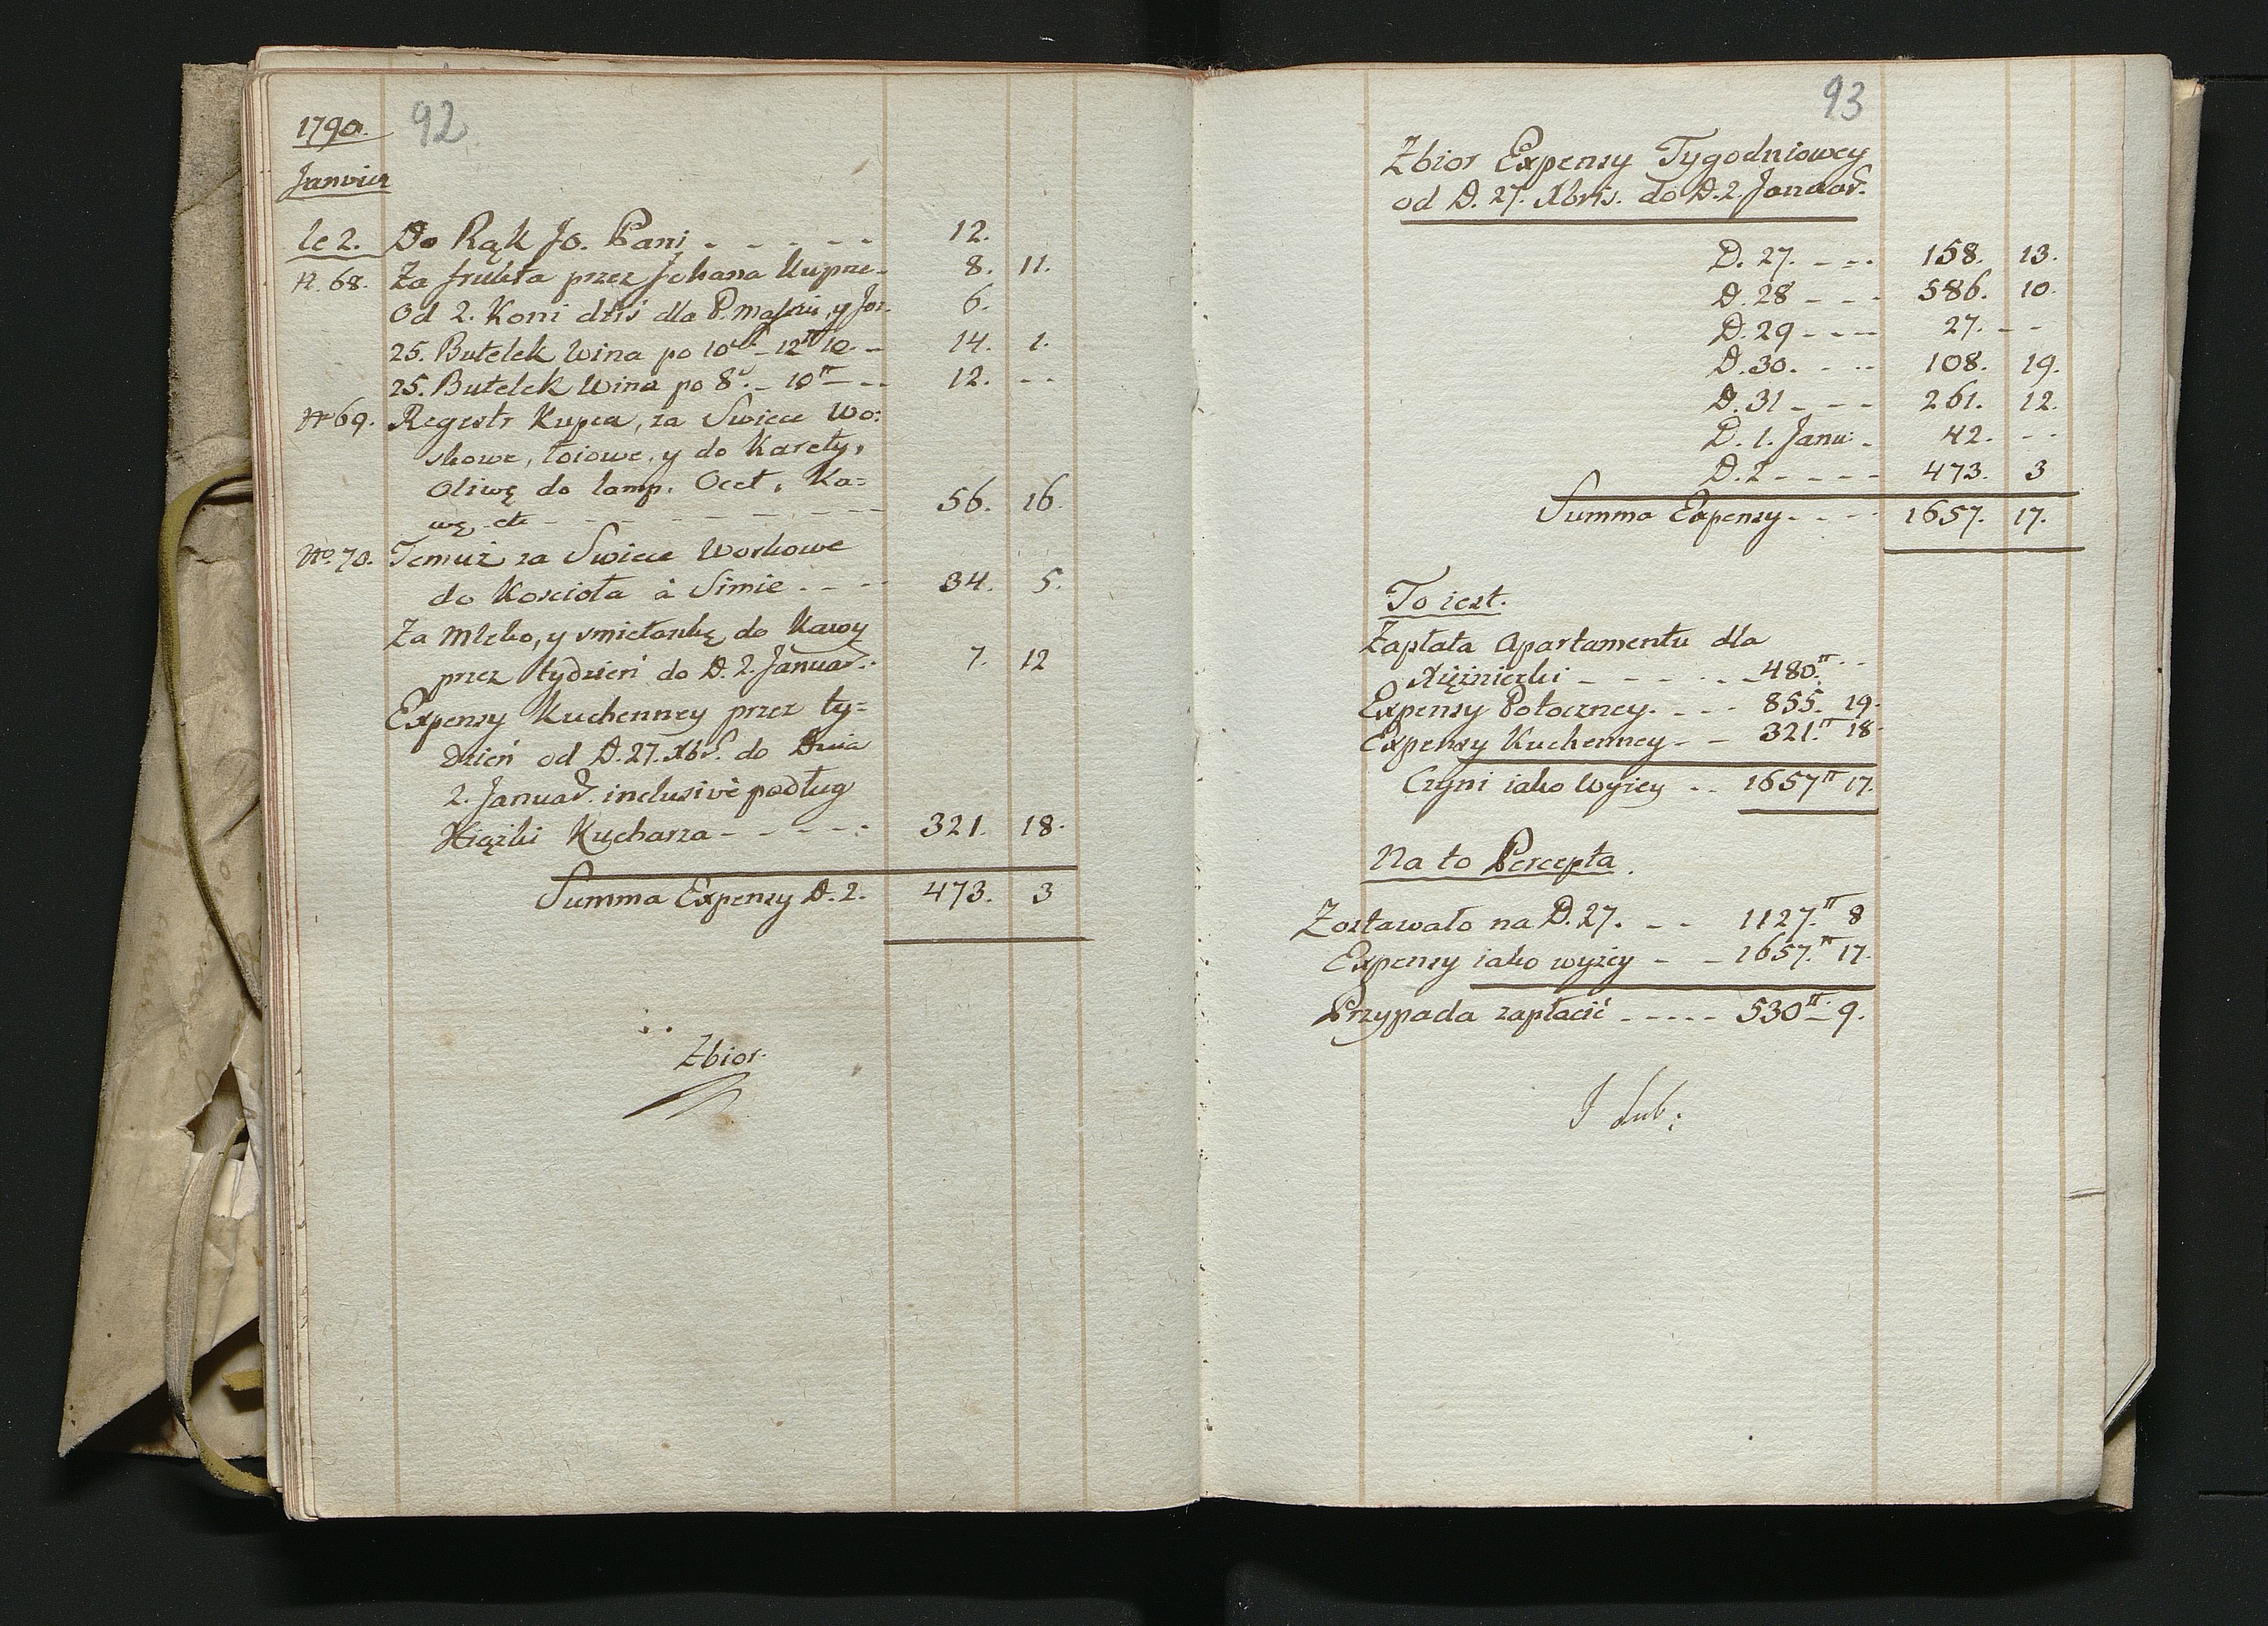 92
1790.
Janvier
le 2. Do Rąk Jo. Pani - - - - - 12.
N. 68. Za frukta przez Johana Kupne- 8. 11.
Od 2. Koni dziś dla P. y Jos. 6.
25. Butelek Wina po 10 - 12# 10 - 14. 1.
25. Butelek Wina po 8. - 10# - - 12. - -
No 69. Regestr Kupca, za Swiece Wo:
skowe, łoiowe, y do Karety,
Oliwę do lamp, Ocet, Ka=
wę, etc - - - - - - - - 56. 16.
No. 70. Temuż za Swiece Woskowe
do Kościoła à Simie - - - 34. 5.
Za Mleko, y smietankę do Kawy
przez tydzień do D. 2. Januar. 7. 12
Expensy Kuchenney przez ty=
dzień od D. 27. Xbr. do Dnia
2. Januar. inclusivè podług
Xiążki Kucharza - - - - - 321. 18.
Summa Expensy D. 2. 473. 3
Zbior
93
Zbior Expensy Tygodniowey
od D. 27. Xbris. do D. 2. Januar.
D. 27. - - - 158. 13.
D. 28 - - - 586. 10.
D. 29 - - - 27. - -
D. 30. - - - 108. 19.
D. 31 - - - 261. 12.
D. 1. Janu: - 42. - -
D. 2 - - - - 473. 3
Summa Expensy - - - 1657. 17.
To iest.
Zapłata Apartamentu dla
Xiężniczki - - - - - 480# - -
Expensy Potoczney. - - - 855. 19.
Expensy Kuchenney - - 321.# 18.
Czyni iako Wyżey - - 1657# 17.
Na to Percepta.
Zostawało na D. 27. - - 1127.# 8
Expensy iako wyżey - - 1657.# 17.
Przypada zapłacić - - - - - 530# - 9.
J Lub: